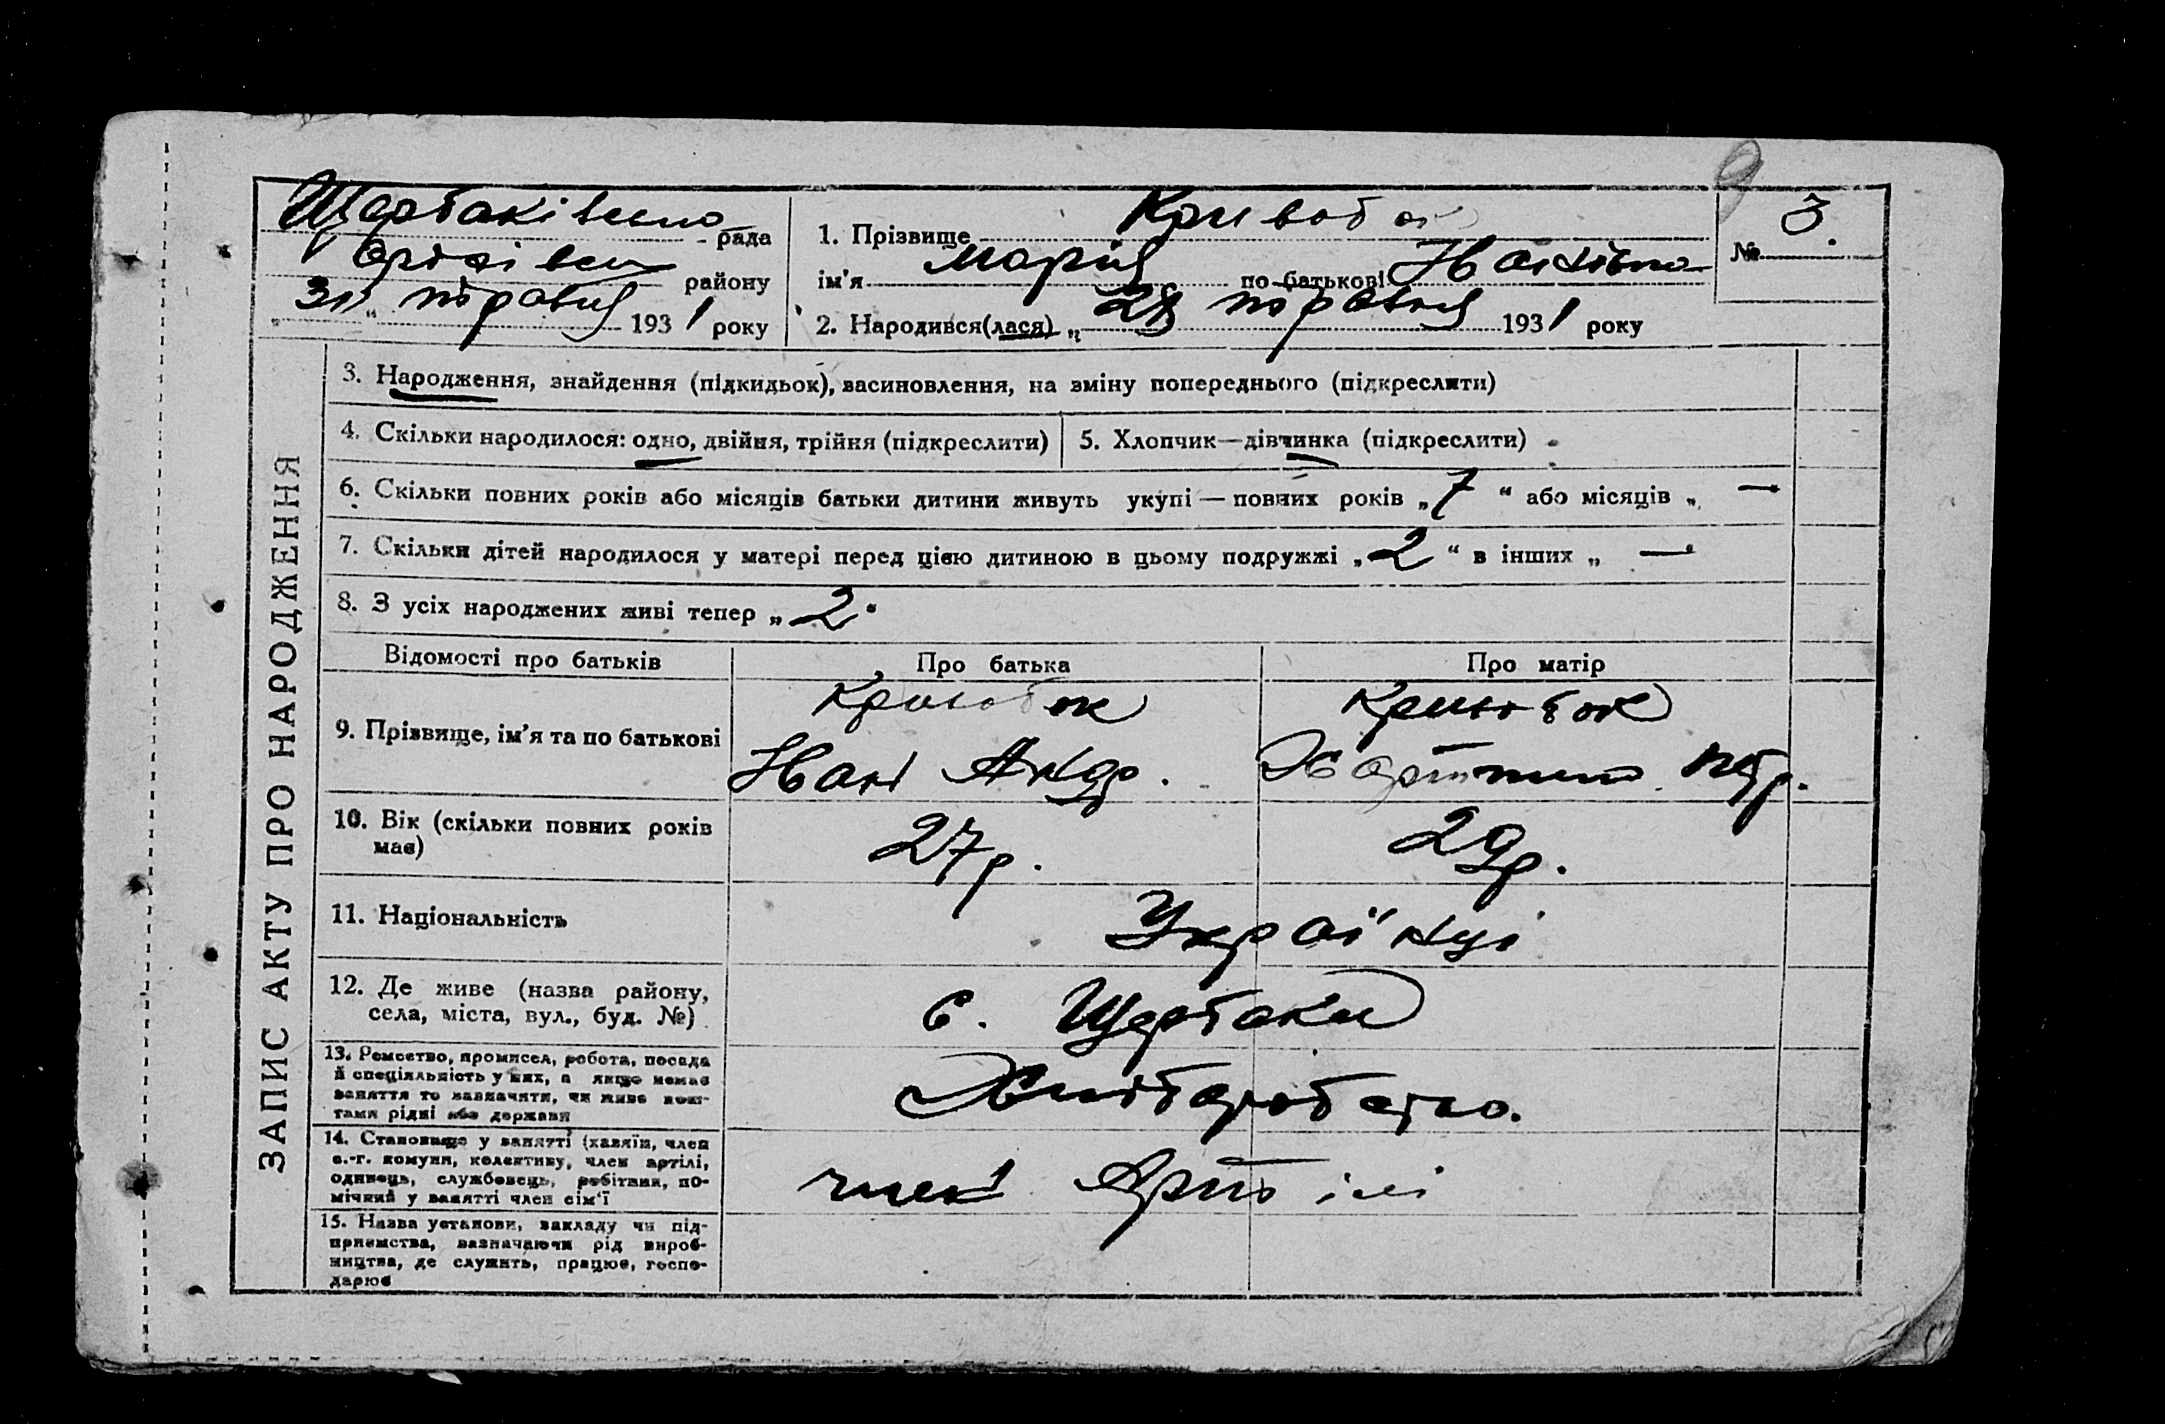 Щербаківська рада
району
31 " травня 1931 року
1. Прізвище Кривобок
ім'я Марія по-батькові Іванівна
2. Народився(лася) „ 28 травня 1931 року
№ 3.
ЗАПИС АКТУ ПРО НАРОДЖЕННЯ
3. Народження, знайдення (підкидьок), васиновлення, на зміну попереднього (підкреслити)
4. Скільки народилося: одно, двійня, трійня (підкреслити)
5. Хлопчик—дівчинка (підкреслити)
6. Скільки повних років або місяців батьки дитини живуть укупі — повних років „ 7 " або місяців „ —
7. Скільки дітей народилося у матері перед цією дитиною в цьому подружжі „ 2 " в інших „ —
8. З усіх народжених живі тепер „ 2
Відомості про батьків Про батька Про матір
9. Прізвище, ім'я та по батькові
Кривобок
Іван Андр.
Кривобок
петр.
10. Вік (скільки повних років має)
27 р.
29 р.
11. Національність
Українці
12. Де живе (назва району,
села, міста, вул., буд. №)
с. Щербаки
13. Ремество, промисел, робота, посада
й спеціяльність у них, а якщо немає
заняття то зазначити, чи живе кош-
тами рідні або держави
Хліборобство.
14. Становище у занятті (хазяїн, член
с.-г. комуни, колективу, член артілі,
одинець, службовець, робітник, по-
мічний у занятті член сім'ї
член Артілі
15. Назва установи, закладу чи під-
приємства, зазначаючи рід вироб-
ництва, де служить, працює, госпо-
дарює